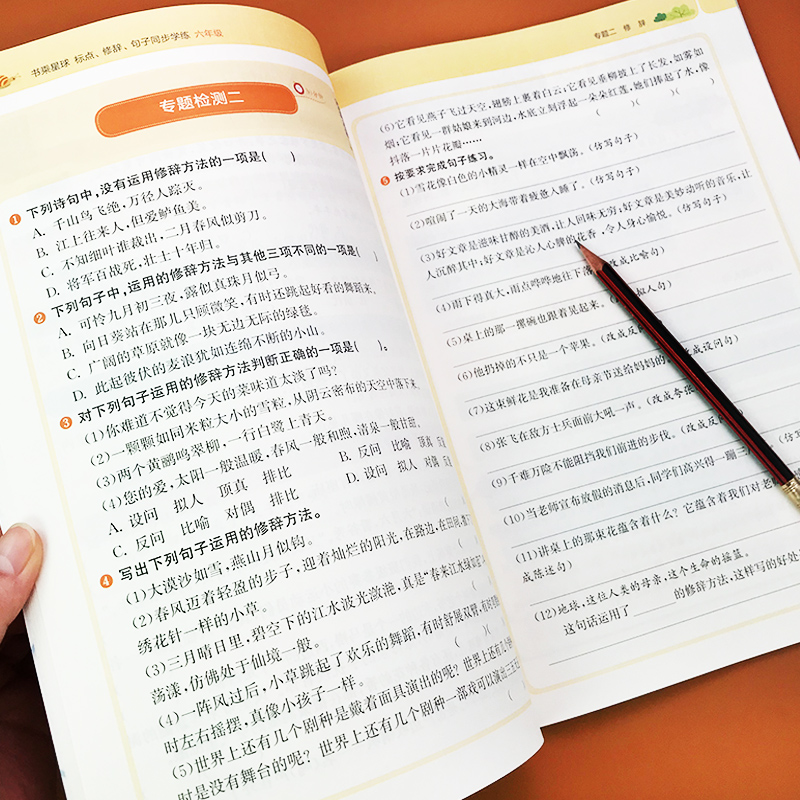 书乘星球 标点、修辞、句子同步学练 六年级
专题检测二
1 下列诗句中,没有运用修辞方法的一项是( )
A. 千山鸟飞绝,万径人踪灭。
B. 江上往来人,但爱鲈鱼美。
C. 不知细叶谁裁出,二月春风似剪刀。
D. 将军百战死,壮士十年归。
2 下列句子中,运用的修辞方法与其他三项不同的一项是( )
A. 可怜九月初三夜,露似真珠月似弓。
B. 向日葵站在那儿只顾微笑,有时还跳起好看的舞蹈来。
C. 广阔的草原就像一块无边无际的绿毯。
D. 此起彼伏的麦浪犹如连绵不断的小山。
3 对下列句子运用的修辞方法判断正确的一项是( )。
(1)你难道不觉得今天的菜味道太淡了吗?
(2)一颗颗如同米粒大小的雪粒,从阴云密布的天空中落下来。
(3)两个黄鹂鸣翠柳,一行白鹭上青天。
(4)您的爱,太阳一般温暖,春风一般和煦,清泉一般甘甜。
A. 设问 拟人 顶真 排比
B. 反问 比喻 顶真
C. 反问 比喻 对偶 排比
D. 设问 拟人 对偶
4 写出下列句子运用的修辞方法。
(1)大漠沙如雪,燕山月似钩。
(2)春风迈着轻盈的步子,迎着灿烂的阳光,在路边,在田间,
绣花针一样的小草。
(3)三月晴日里,碧空下的江水波光潋滟,真是“春来江水绿如蓝”
荡漾,仿佛处于仙境一般。
(4)一阵风过后,小草跳起了欢乐的舞蹈,有时舒展双臂,有时
时左右摇摆,真像小孩子一样。
(5)世界上还有几个剧种是戴着面具演出的呢?世界上还有几个
时是没有舞台的呢?世界上还有几个剧种一部戏可以演出三五
专题二 修 辞
(6)它看见燕子飞过天空,翅膀上裹着白云;它看见垂柳披上了长发,如雾如
烟;它看见一群姑娘来到河边,水底立刻浮起一朵朵红莲,她们捧起了水,像
抖落一片片花瓣…… ( )( )( )
5 按要求完成句子练习。
(1)雪花像白色的小精灵一样在空中飘荡。(仿写句子)
(2)喧闹了一天的大海带着疲惫入睡了。(仿写句子)
(3)好文章是滋味甘醇的美酒,让人回味无穷;好文章是美妙动听的音乐,让
人沉醉其中;好文章是沁人心脾的花香,令人身心愉悦。(仿写句子)
(4)雨下得真大,雨点哗哗地往下落。(改成比喻句)
(5)桌上的那一摞碗也跟着晃起来。(拟人句)
(6)他扔掉的不只是一个苹果。(改成反
(7)这束鲜花是我准备在母亲节送给妈妈的 成设问句)
(8)张飞在敌方士兵面前大吼一声。(改成夸张
(9)千难万险不能阻挡我们前进的步伐。(改成反
(10)当老师宣布放假的消息后,同学们高兴得一蹦三
(11)讲桌上的那束花蕴含着什么?它蕴含着我们对老
成陈述句)
(12)地球,这位人类的母亲,这个生命的摇篮。
这句话运用了 的修辞方法,这样写的好处